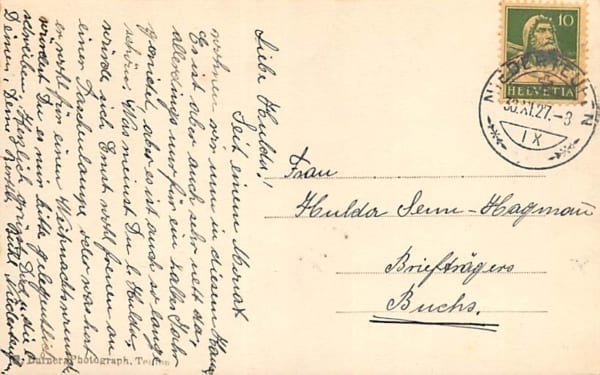 Liebe Hulda!
Seit einem Monat
wohnen wir nun in diesem Haus
Es ist aber auch sehr nett da,
allerdings nur für ein halbes Jahr
gemietet, aber es ist auch so lange
schön. Was meinst Du l. Hulda,
würde sich Ernst wohl freuen an
einer Taschenlampe, oder was hat
er wohl für einen Weihnachtswunsch
würdest Du es mir bitte gelegentlich
schreiben. Herzlich grüsst Dich u. die
Deinen, Deine Martha
10
HELVETIA
NIEDERNEUNF
30.XI.27.-3
IX
Frau
Hulda Senn-Hagmann
Briefträgers
Buchs.
Burner, Photograph, Teufen